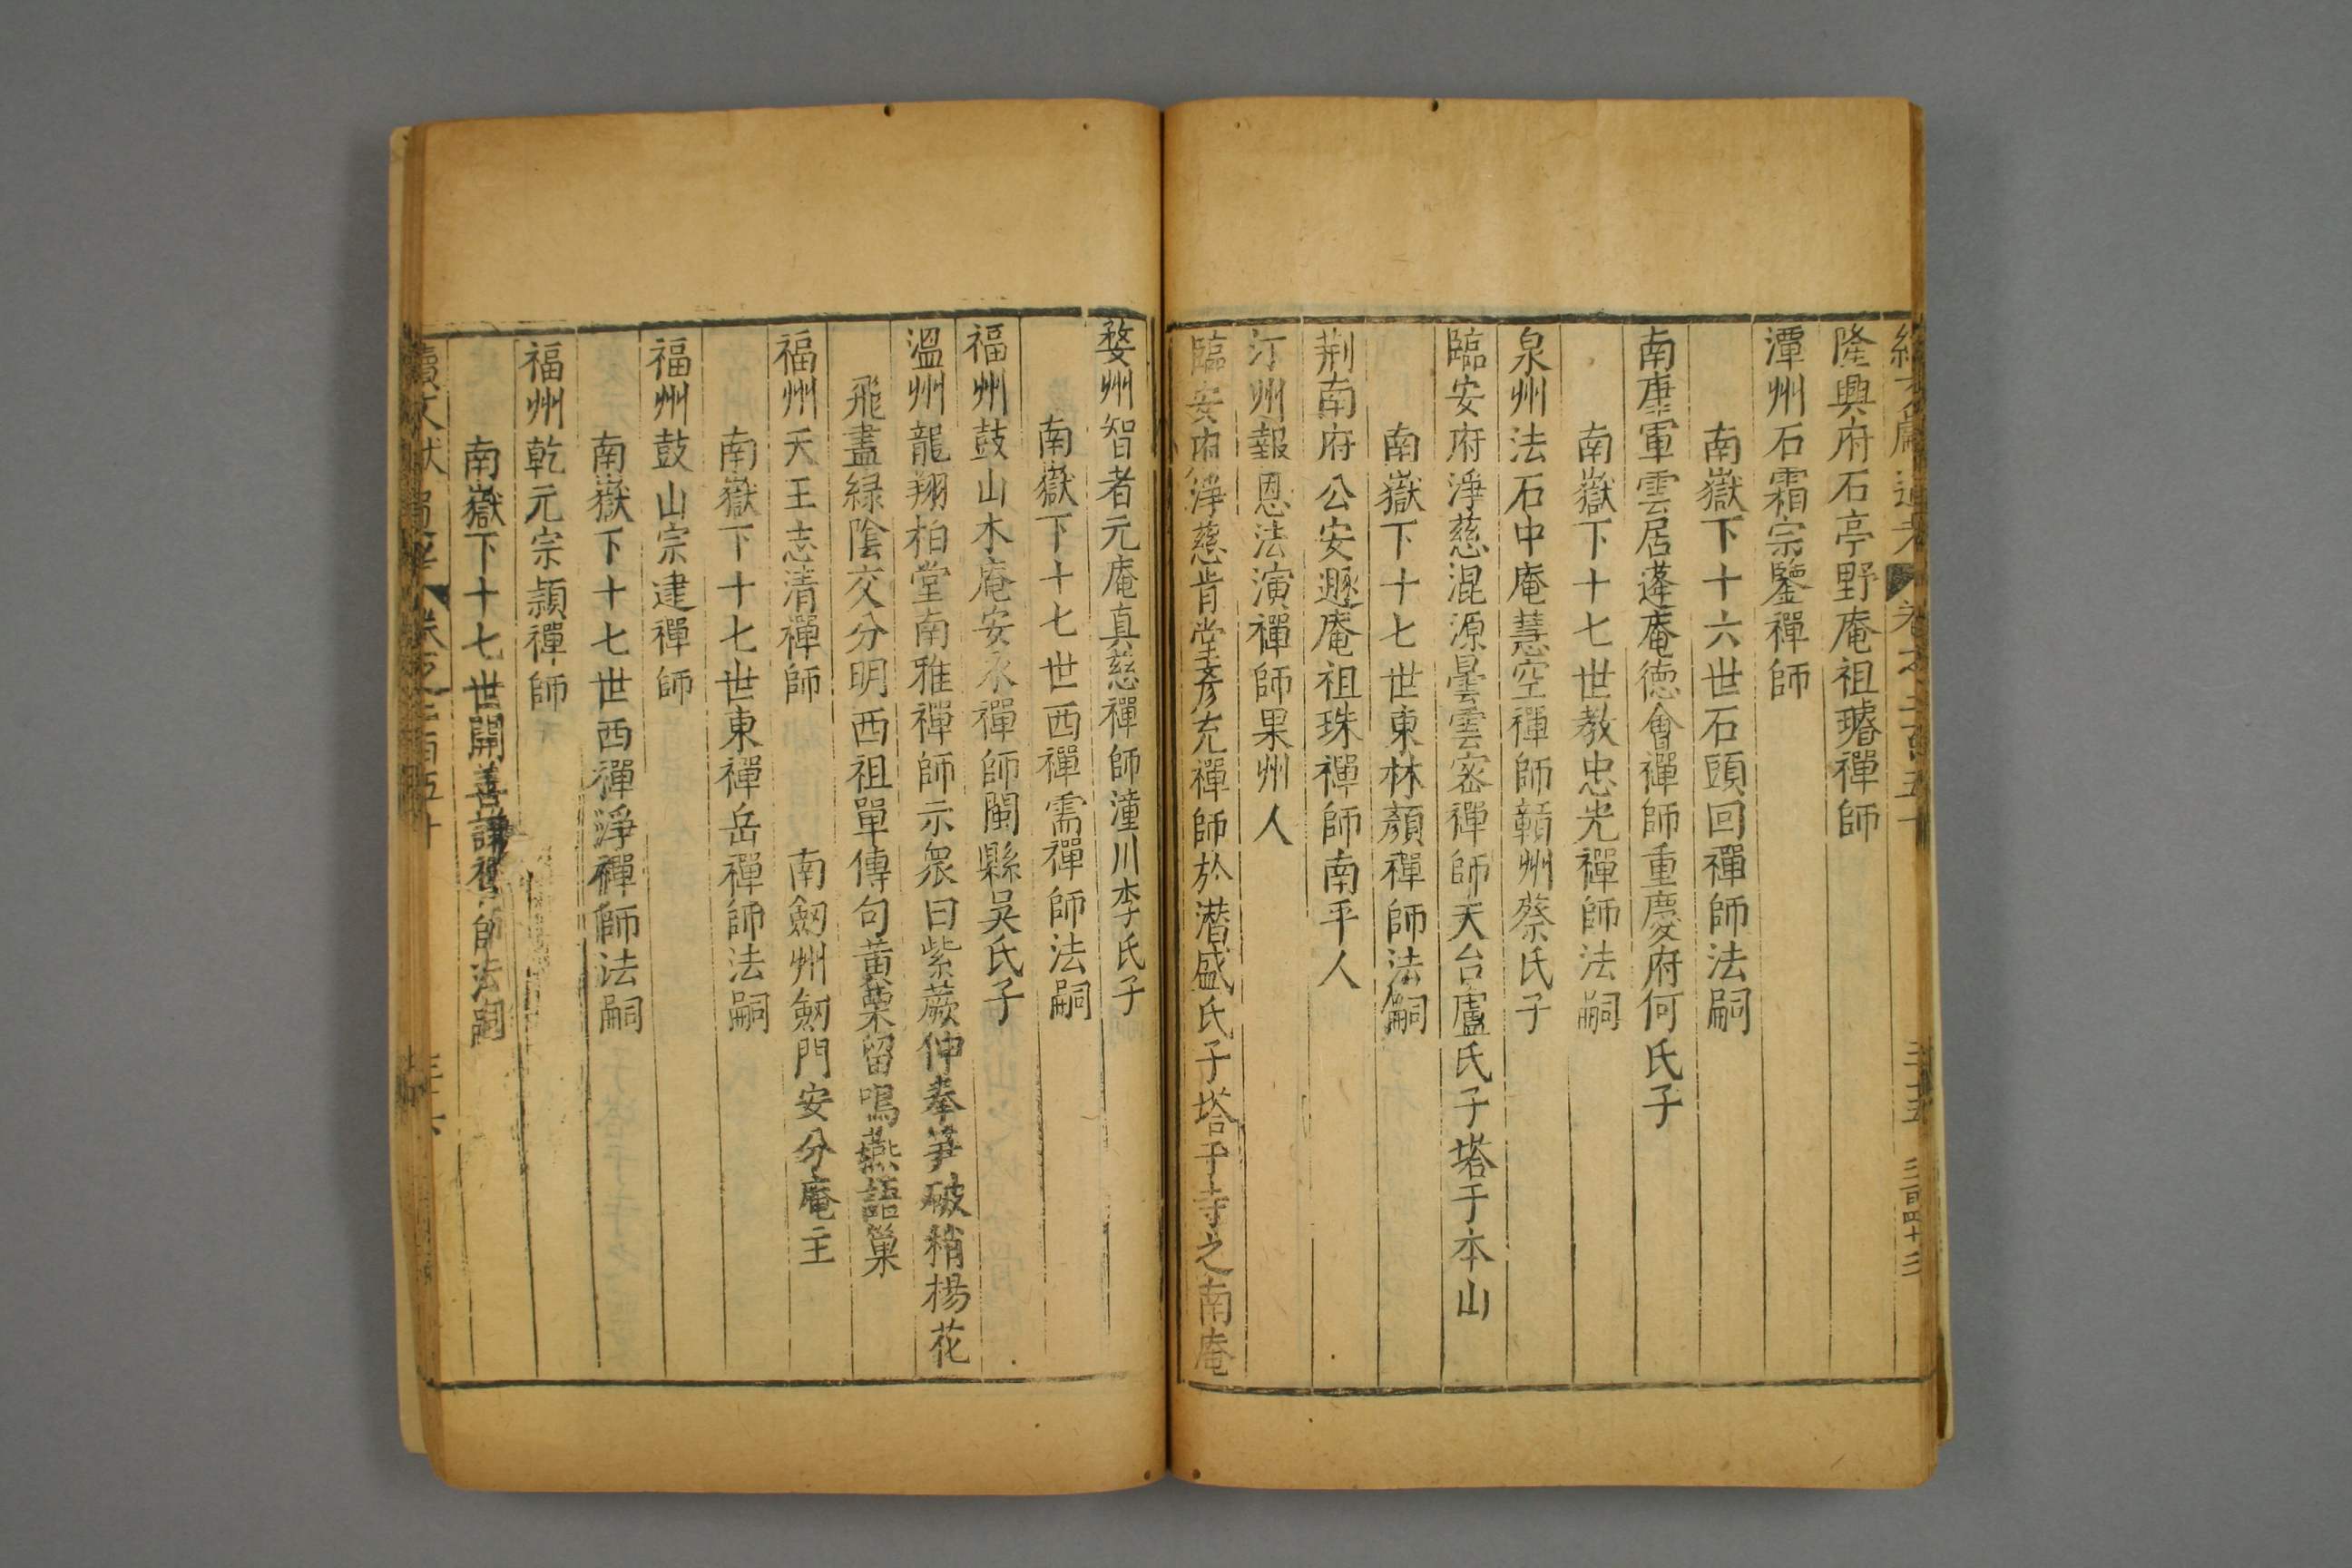 續文獻通考 卷之二百五十 三十五 三百四十三
隆興府石亭野庵祖璿禪師
潭州石霜宗鑒禪師
南嶽下十六世石頭回禪師法嗣
南康軍雲居蓬庵德會禪師重慶府何氏子
南嶽下十七世教忠光禪師法嗣
泉州法石中庵慧空禪師贑州蔡氏子
臨安府淨慈混源曇雲密禪師天台盧氏子塔于本山
南嶽下十七世東林顏禪師法嗣
荆南府公安遯庵祖珠禪師南平人
汀州報恩法演禪師果州人
臨安府淨慈肯堂彥充禪師於潜盛氏子塔于寺之南庵
婺州智者元庵真慈禪師潼川李氏子
南嶽下十七世西禪需禪師法嗣
福州鼓山木庵安永禪師閩縣吳氏子
溫州龍翔柏堂南雅禪師示衆曰紫蕨伸拳笋破稍楊花
飛盡緑陰交分明西祖單傳句黄栗留鳴燕語巢
福州天王志清禪師 南劔州劔門安分庵主
南嶽下十七世東禪岳禪師法嗣
福州鼓山宗逮禪師
南嶽下十七世西禪淨禪師法嗣
福州乾元宗頴禪師
南嶽下十七世開善謙禪師法嗣
續文獻通考 卷之二百五十 三十六